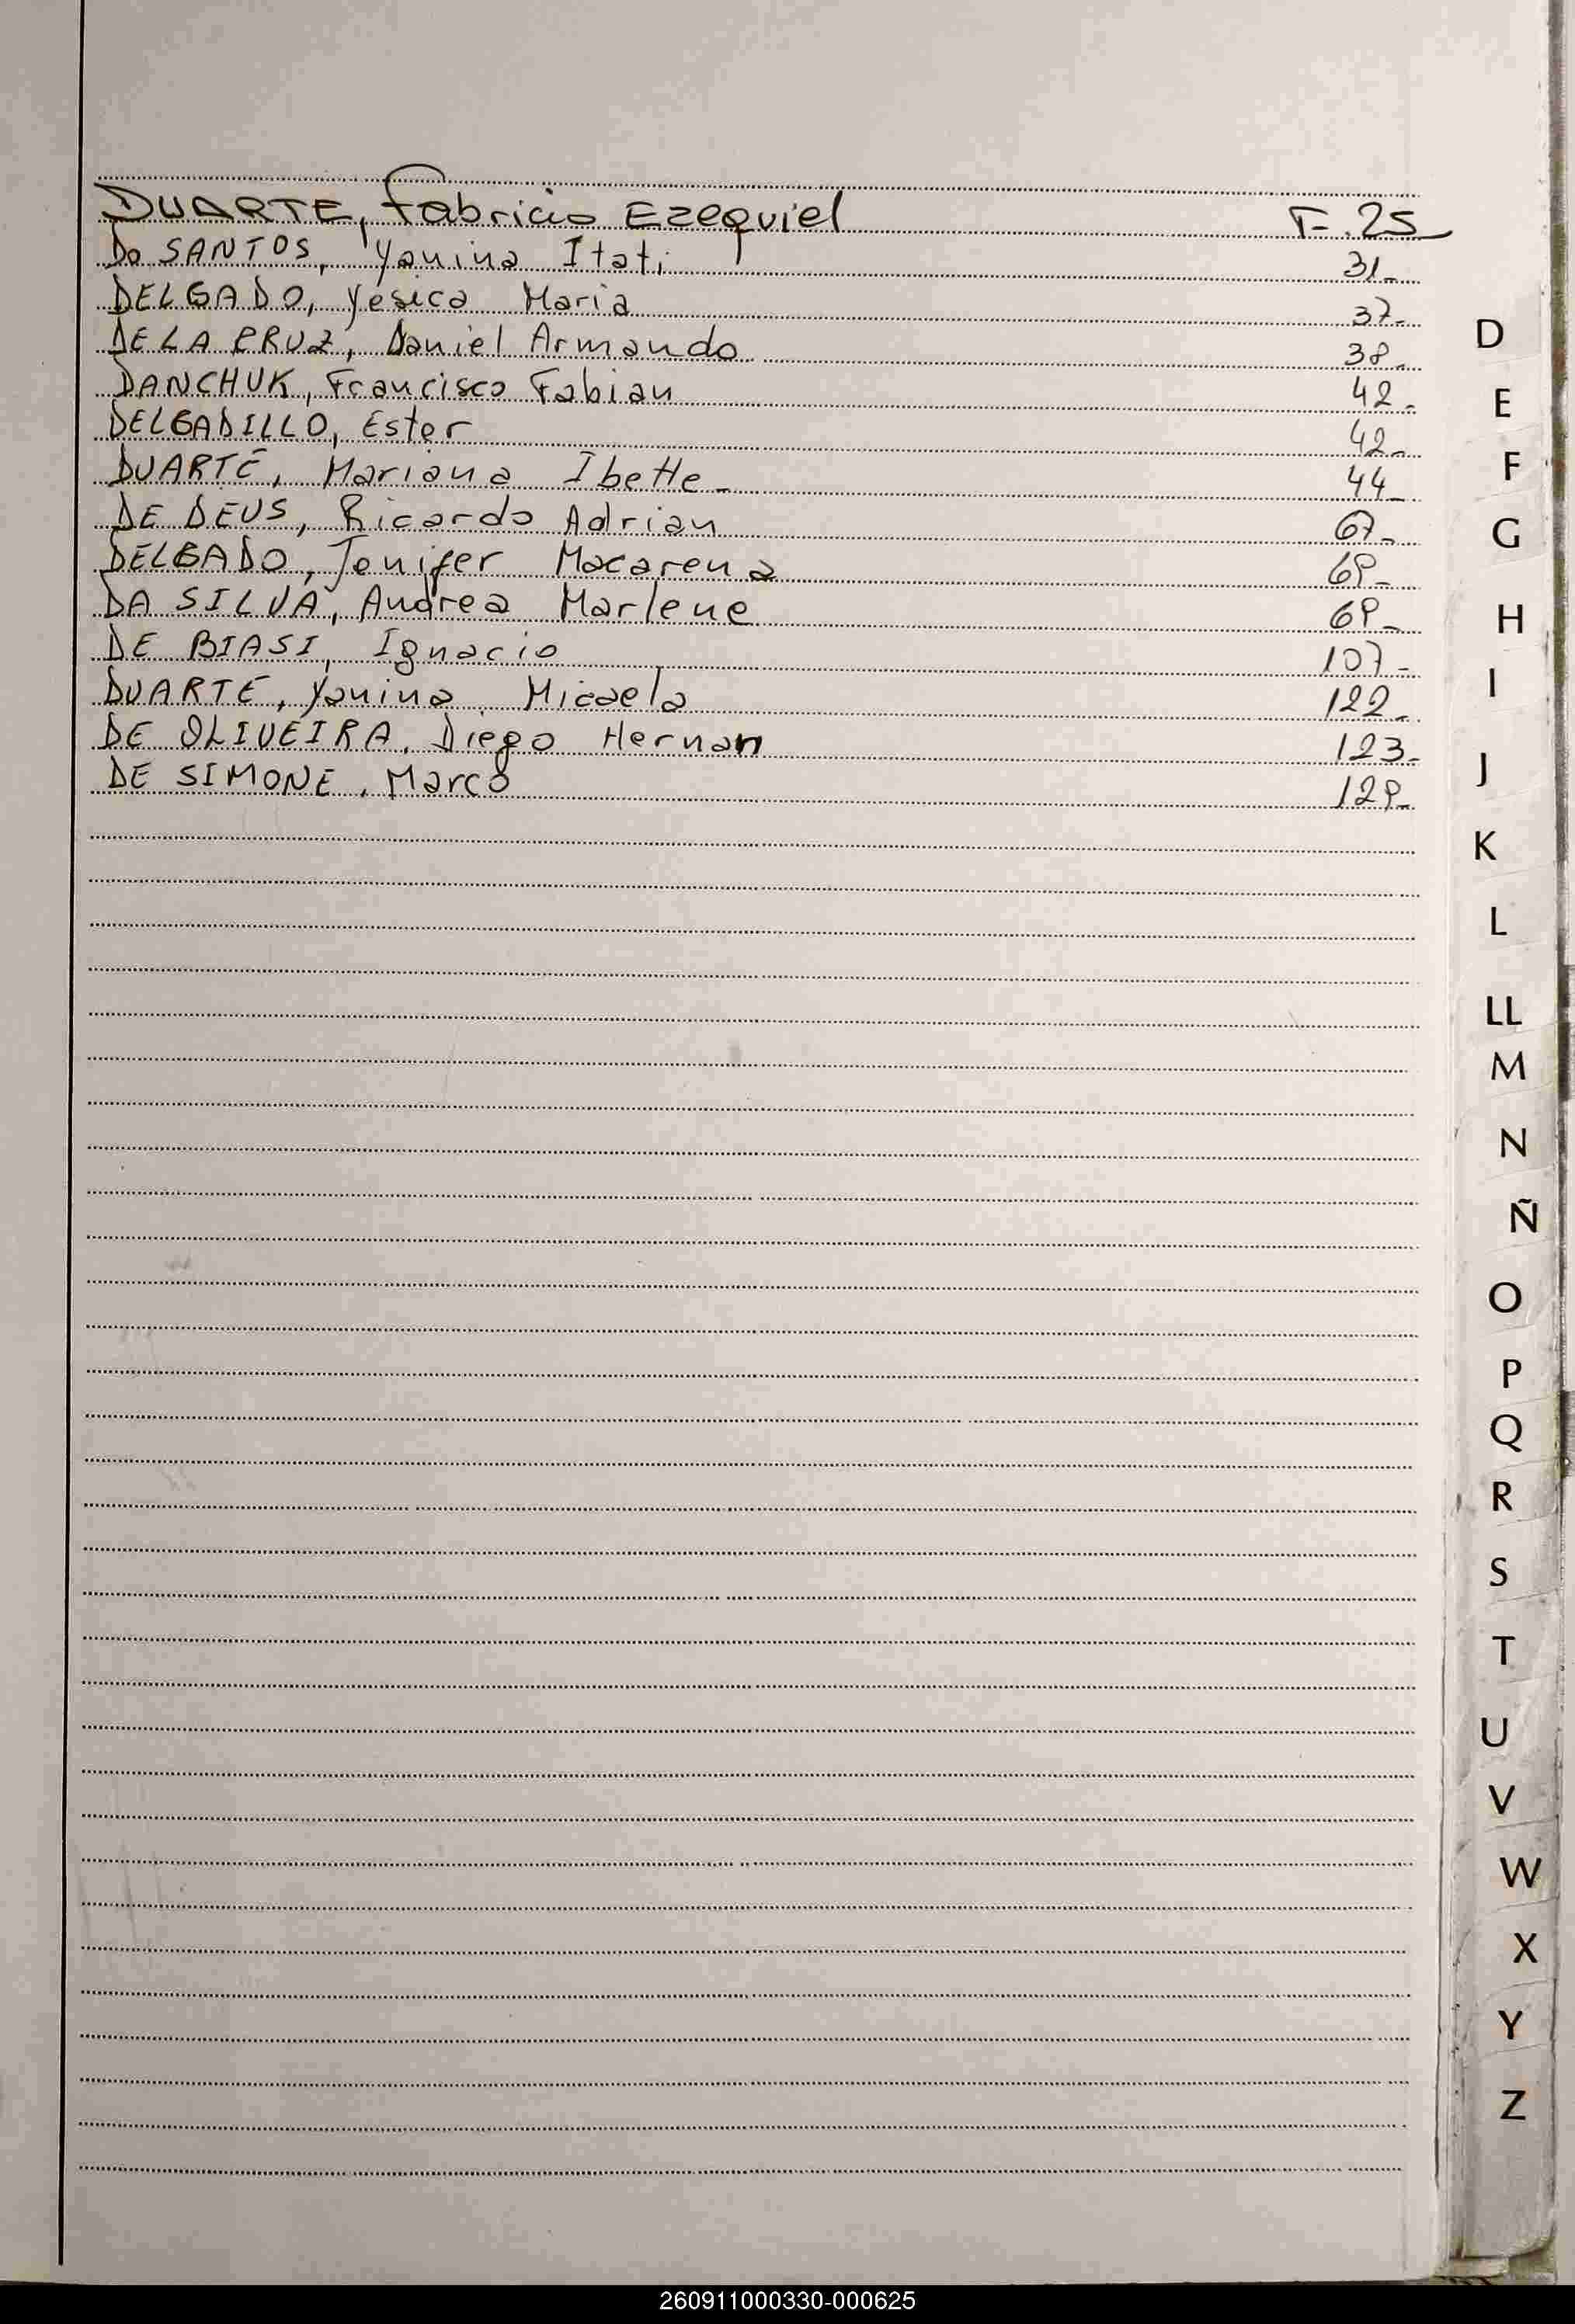 DUARTE, Fabricio Ezequiel F. 25
Do SANTOS, Yanina Itati 31-
DELGADO, Yésica Maria 37-
DE LA CRUZ, Daniel Armando 38-
DANCHUK, Francisco Fabian 42-
DELGADILLO, Ester 42-
DUARTE, Mariana Ibette- 44-
DE DEUS, Ricardo Adrian 67-
DELGADO, Jenifer Macarena 69-
DA SILVA, Andrea Marlene 69-
DE BIASI, Ignacio 107-
DUARTE, Yanina Micaela 122-
DE OLIVEIRA, Diego Hernan 123-
DE SIMONE, Marco 129-
D
E
F
G
H
I
J
K
L
LL
M
N
Ñ
O
P
Q
R
S
T
U
V
W
X
Y
Z
260911000330-000625